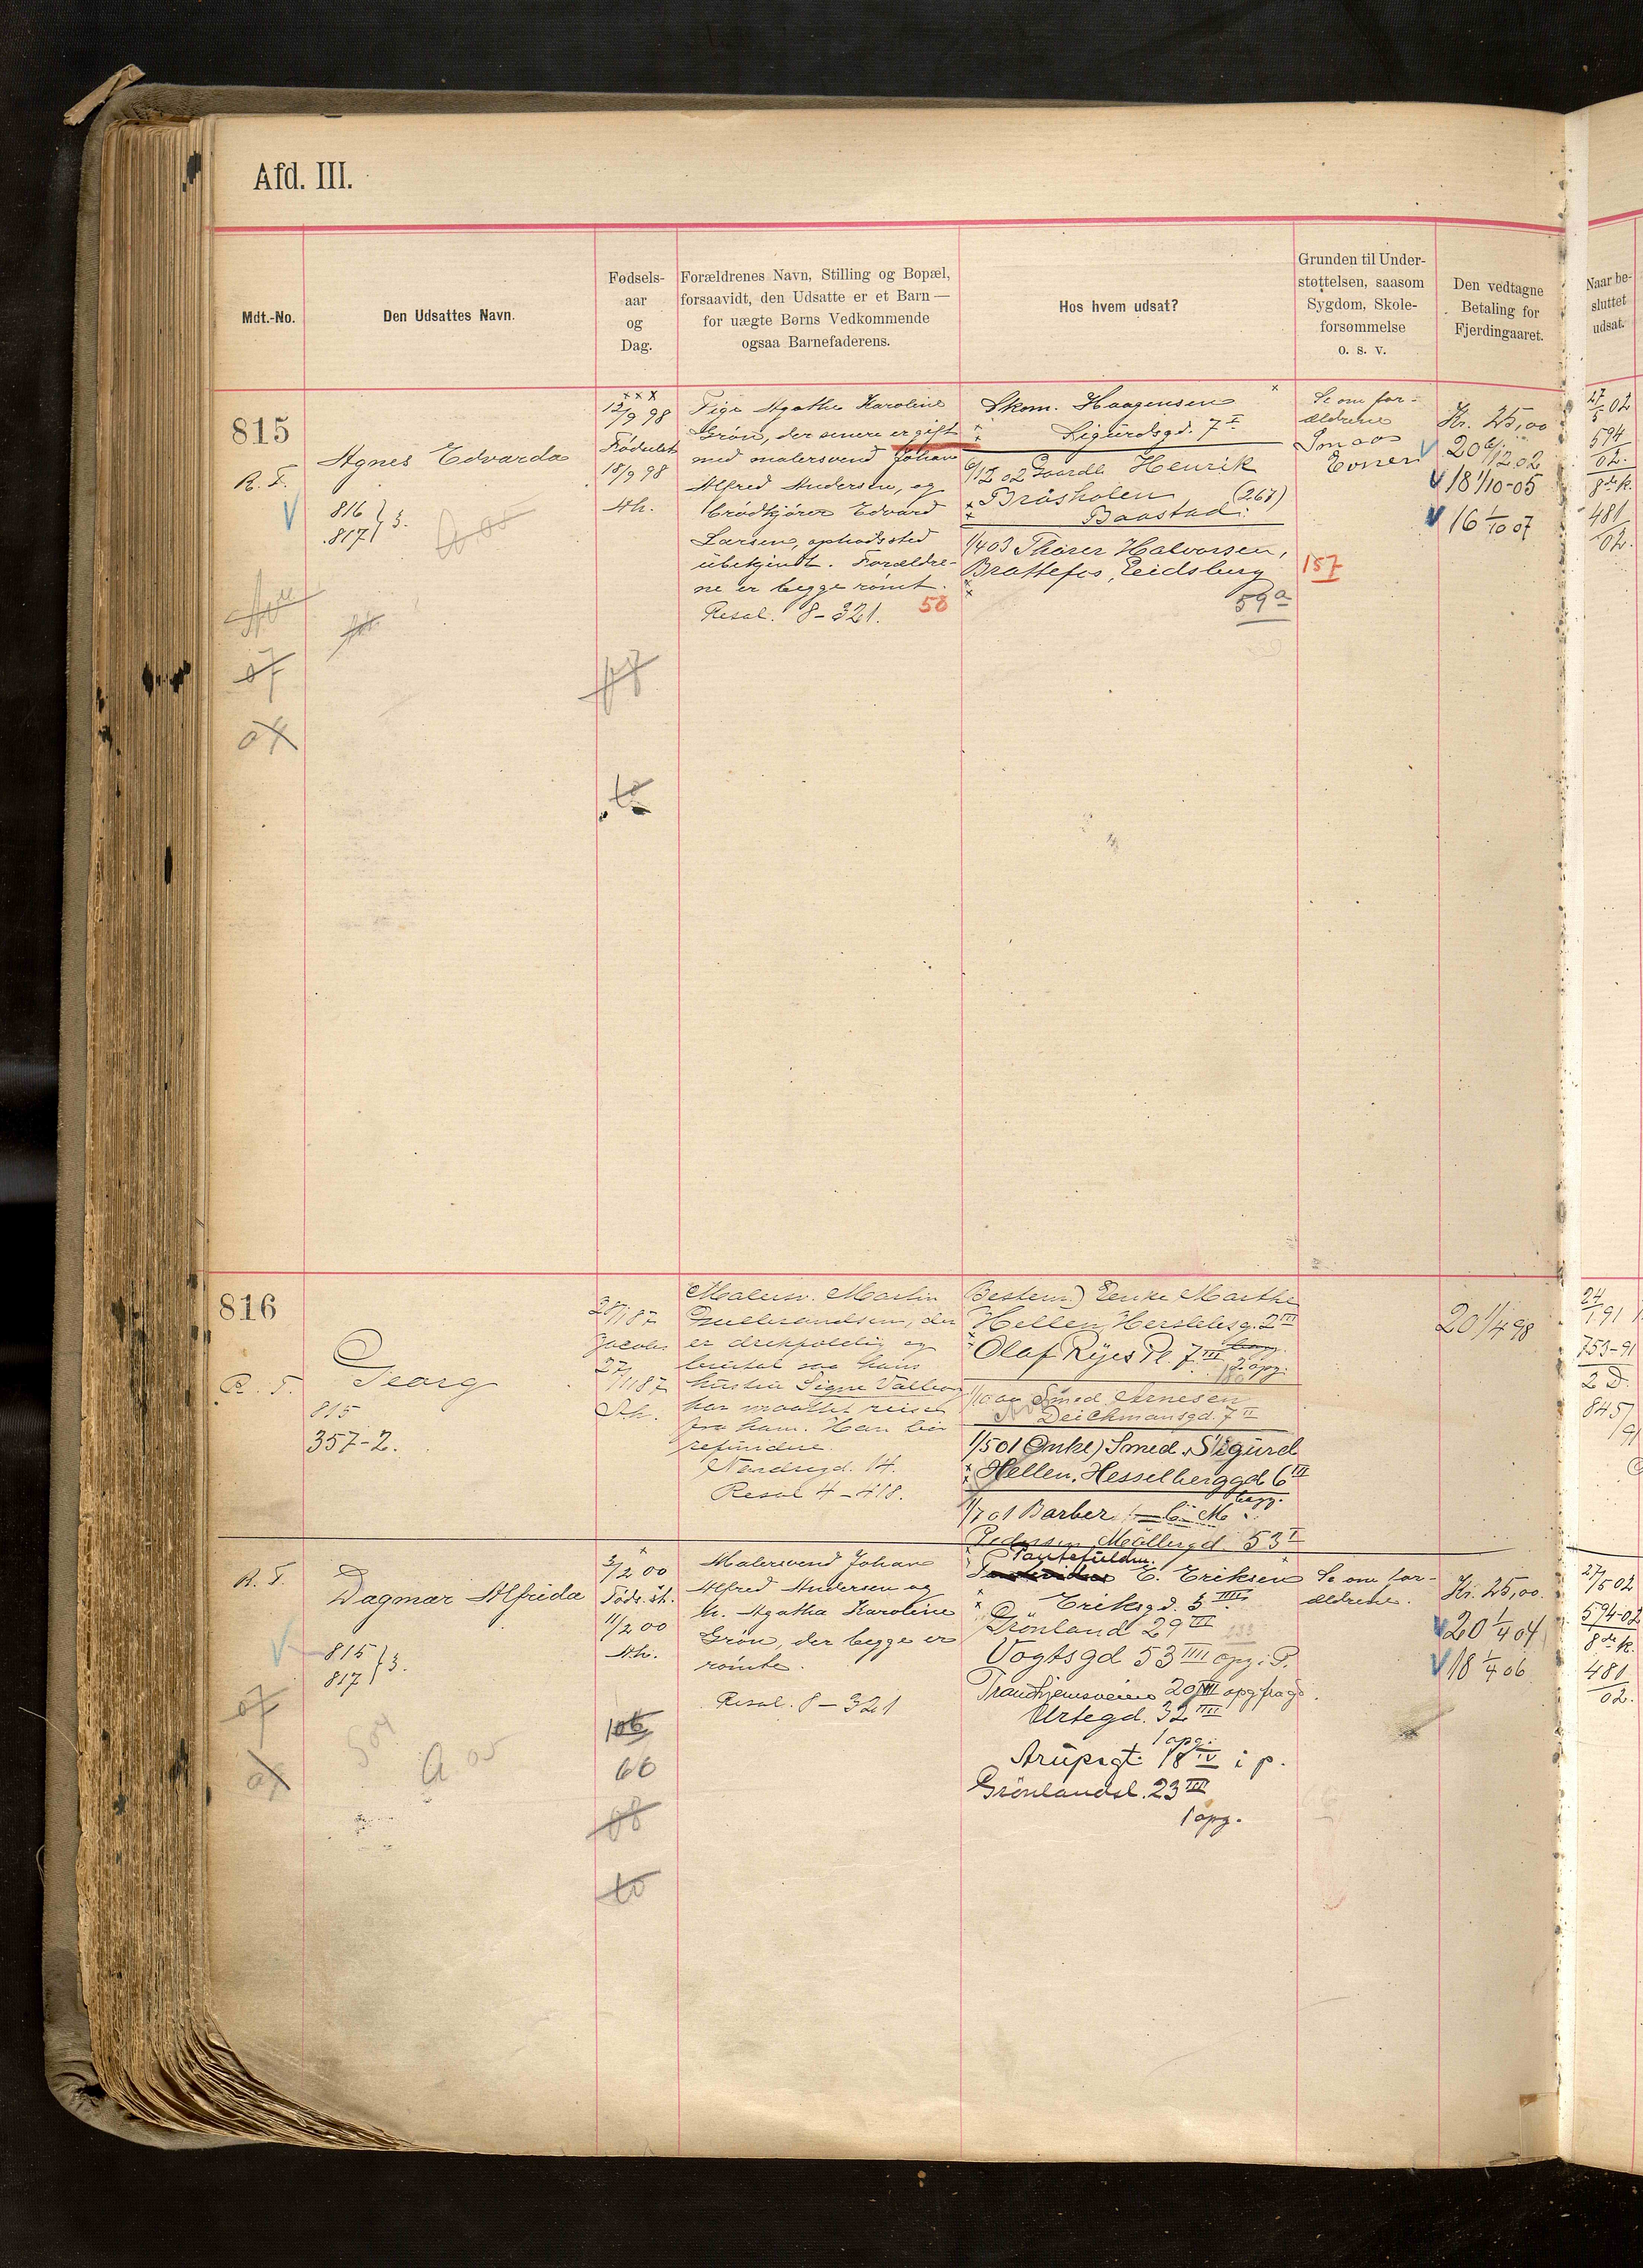 Afd. III.
Mdt.-No.
Den Udsattes Navn.
Fødsels-
aar
og
Dag.
Forældrenes Navn, Stilling og Bopæl,
forsaavidt, den Udsatte er et Barn —
for uægte Børns Vedkommende
ogsaa Barnefaderens.
Hos hvem udsat?
Grunden til Under-
støttelsen, saasom
Sygdom, Skole-
forsømmelse
o. s. v.
Den vedtagne
Betaling for
Fjerdingaaret.
Naar be-
sluttet
udsat.
815
R. F.
Agnes Edvarda
816 } 3.
817
12/9 98
Födselst.
18/9 98
Ah.
Pige Agathe Karoline
Grön, der senere er gift
med malersvend Johan
Alfred Andersen, og
brødkjører Edvard
Larsen, opholdssted
ubekjendt. Forældre-
ne er begge römt.
Resol. 8-321.
58
Skom. Haagensen
Sigurdsgd. 7 I
Gaardb. Henrik
Bråsholen (267)
Baastad.
1/4 03 Thorer Halvorsen,
Brattefos, Eidsberg
59a
Se om for-
ældrene
157
Kr. 25,00
20 6/12 02
18 1/10-05
16 1/10 07
27/5 02
594
02.
8de k.
481
02.
07
816
R. F.
Georg
815
357-2.
27/11 87
Malersv. Martin
Gulbrandsen, der
er drikfældig og
brutal saa hans
hustru Signe Valborg
har maattet reise
fra ham. Han bør
refundere.
Nordregd. 14.
Resol 4-418.
Bestem.) Enke Marthe
Hellen, Herslebsg. 2 III
Olaf Ryes Pl. 7 III
2 opg.
Smed Arnesen
Deichmansgd. 7 II
1/5 01 Onkel) Smed Sigurd
Hellen, Hesselberggd 6 III
1/7 01 Barber
Pedersen Möllergd. 53 I
20 1/4 98
24/1 91
753-91
2 D.
845
R. F.
Dagmar Alfrida
815 } 3.
817
3/2 00
Föds.st.
11/2 00
Ah.
Malersvend Johan
Alfred Andersen og
h. Agatha Karoline
Grön, der begge er
römte.
Resol. 8-321
E. Eriksen
Eriksgd. 5 IIII
Grönland 29 III
Vogtsgd 53 IIII opg i P.
Trondhjemsveien 20 opg fra g.
Urtegd. 32 IIII
1 opg.
Arupsgt. 18 IV i p.
Grönlandsl. 23 III
1 opg.
Se om for-
ældrene.
Kr. 25,00.
20 1/4 04
18 1/4 06
27/5 02
594-02
8de k.
481
02.
66